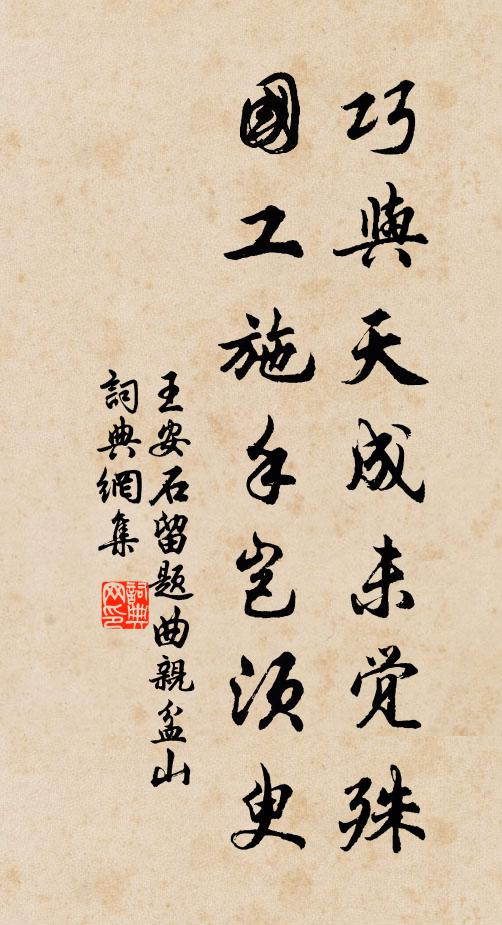 巧與天成未覺殊
國工施手豈須臾
王安石留題曲親盆山
詞典網集
詞典網印